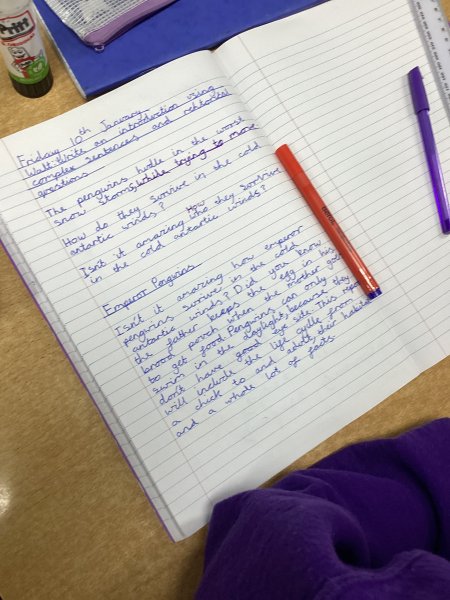 Pritt
Friday 10th January
Walt: Write an introduction using
complex sentences and rehtorical
questions
The penguins hudle in the worst
snow storms, while trying to more
How do they survive in the cold
antartic winds?
Isn't it amazing how they survive
in the cold antartic winds?
Emperor Penguins
Isn't it amazing how emperor
penguins survive in the cold
antartic winds? Did you know
the father keeps the egg in his
brood pouch when the mother goes
to get food. Penguins can only
swim in the daylight, because they
don't have good eye site. This report
will include the life cycle from
a chick to and adult, their habitat
and a whole lot of facts.